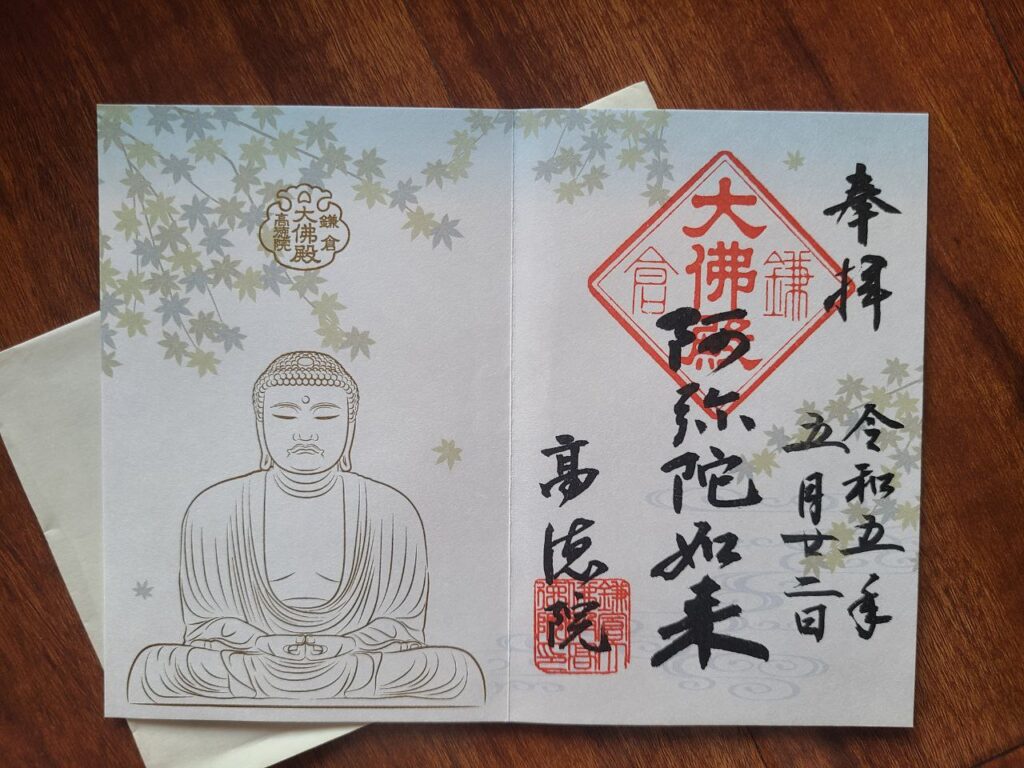 奉拝
令和五年
五月廿二日
鎌倉
大佛殿
阿弥陀如来
高徳院
鎌倉
大佛殿
高徳院